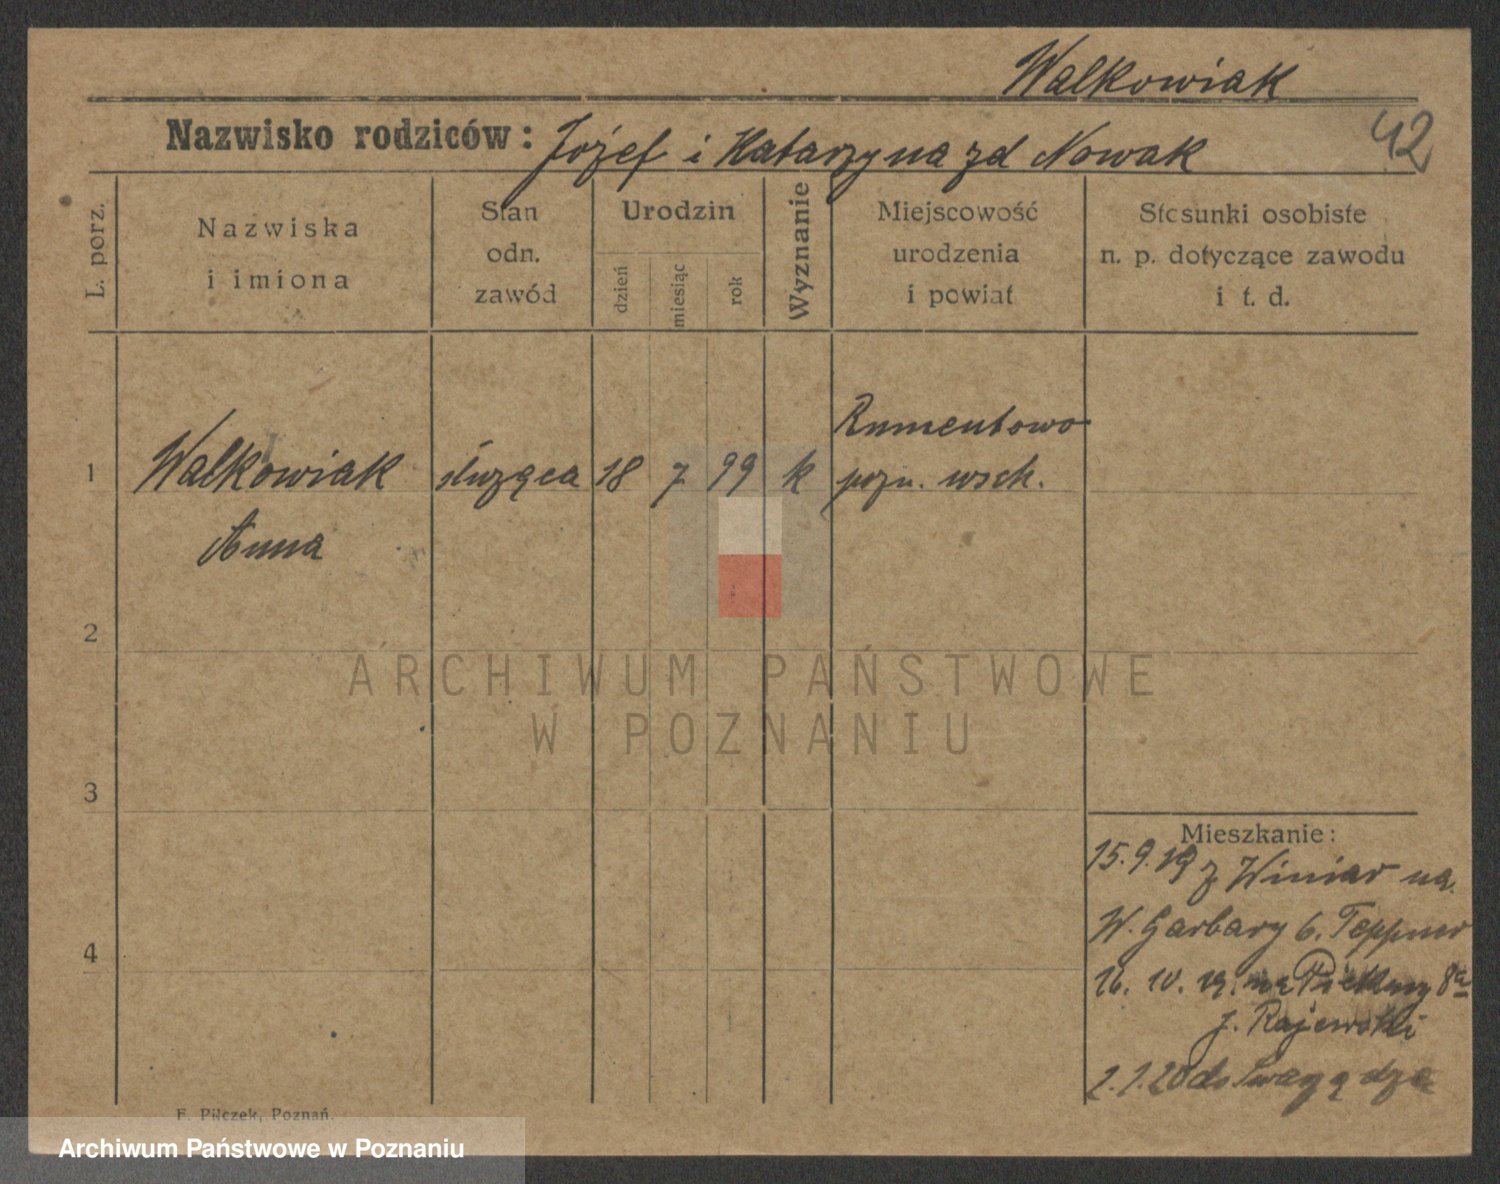 Walkowiak
Nazwisko rodziców: Józef i Katarzyna zd Nowak
42
L. porz.
Nazwiska
i imiona
Stan
odn.
zawód
Urodzin
dzień
miesiąc
rok
Wyznanie
Miejscowość
urodzenia
i powiat
Stosunki osobiste
n. p. dotyczące zawodu
i t. d.
1
Walkowiak
Anna
służąca
18
7
99
k
pozn. wsch.
2
3
4
Mieszkanie:
15.9.19 z Winiar na
W. Garbary 6. Teppner
16. 10. 19. na Piekary 8a
J. Rajewski
2.1.20 do Swarzędza
F. Pilczek, Poznań.
ARCHIWUM PAŃSTWOWE
W POZNANIU
Archiwum Państwowe w Poznaniu